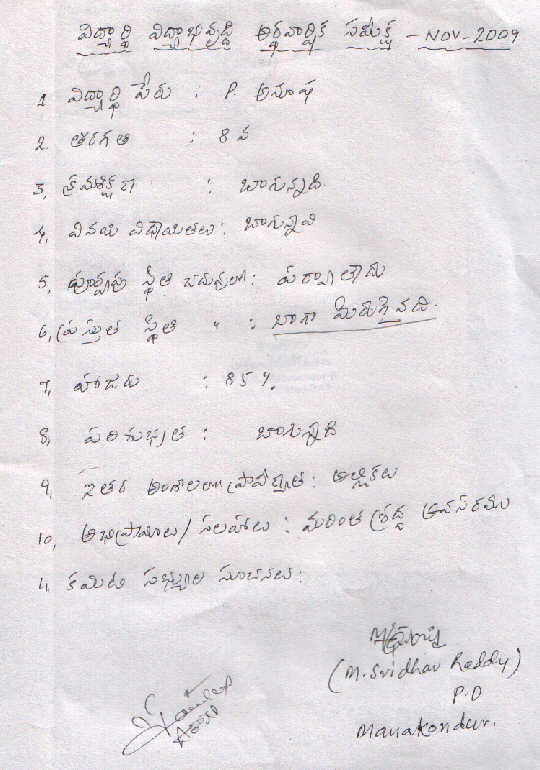 విద్యార్థి విద్యాభివృద్ధి అర్థవార్షిక సమీక్ష - NOV-2009
1 విద్యార్థి పేరు : P. అనూష
2. తరగతి : 8 వ
3, క్రమశిక్షణ : బాగున్నది.
4, వినయ విధేయతలు : బాగున్నవి
5, పూర్వపు స్థితి చదువులో : పర్వాలేదు
6, ప్రస్తుత స్థితి " : బాగా మెరుగైనది.
7, హాజరు : 85 %.
8, పరిశుభ్రత : బాగున్నది
9, ఇతర అంశాలలో ప్రావీణ్యత : అల్లికలు
10, అభిప్రాయాలు / సలహాలు : మరింత శ్రద్ధ అవసరము
11, కమిటి సభ్యుల సూచనలు :
(M. Sridhar Reddy)
P.O
Manakondur.